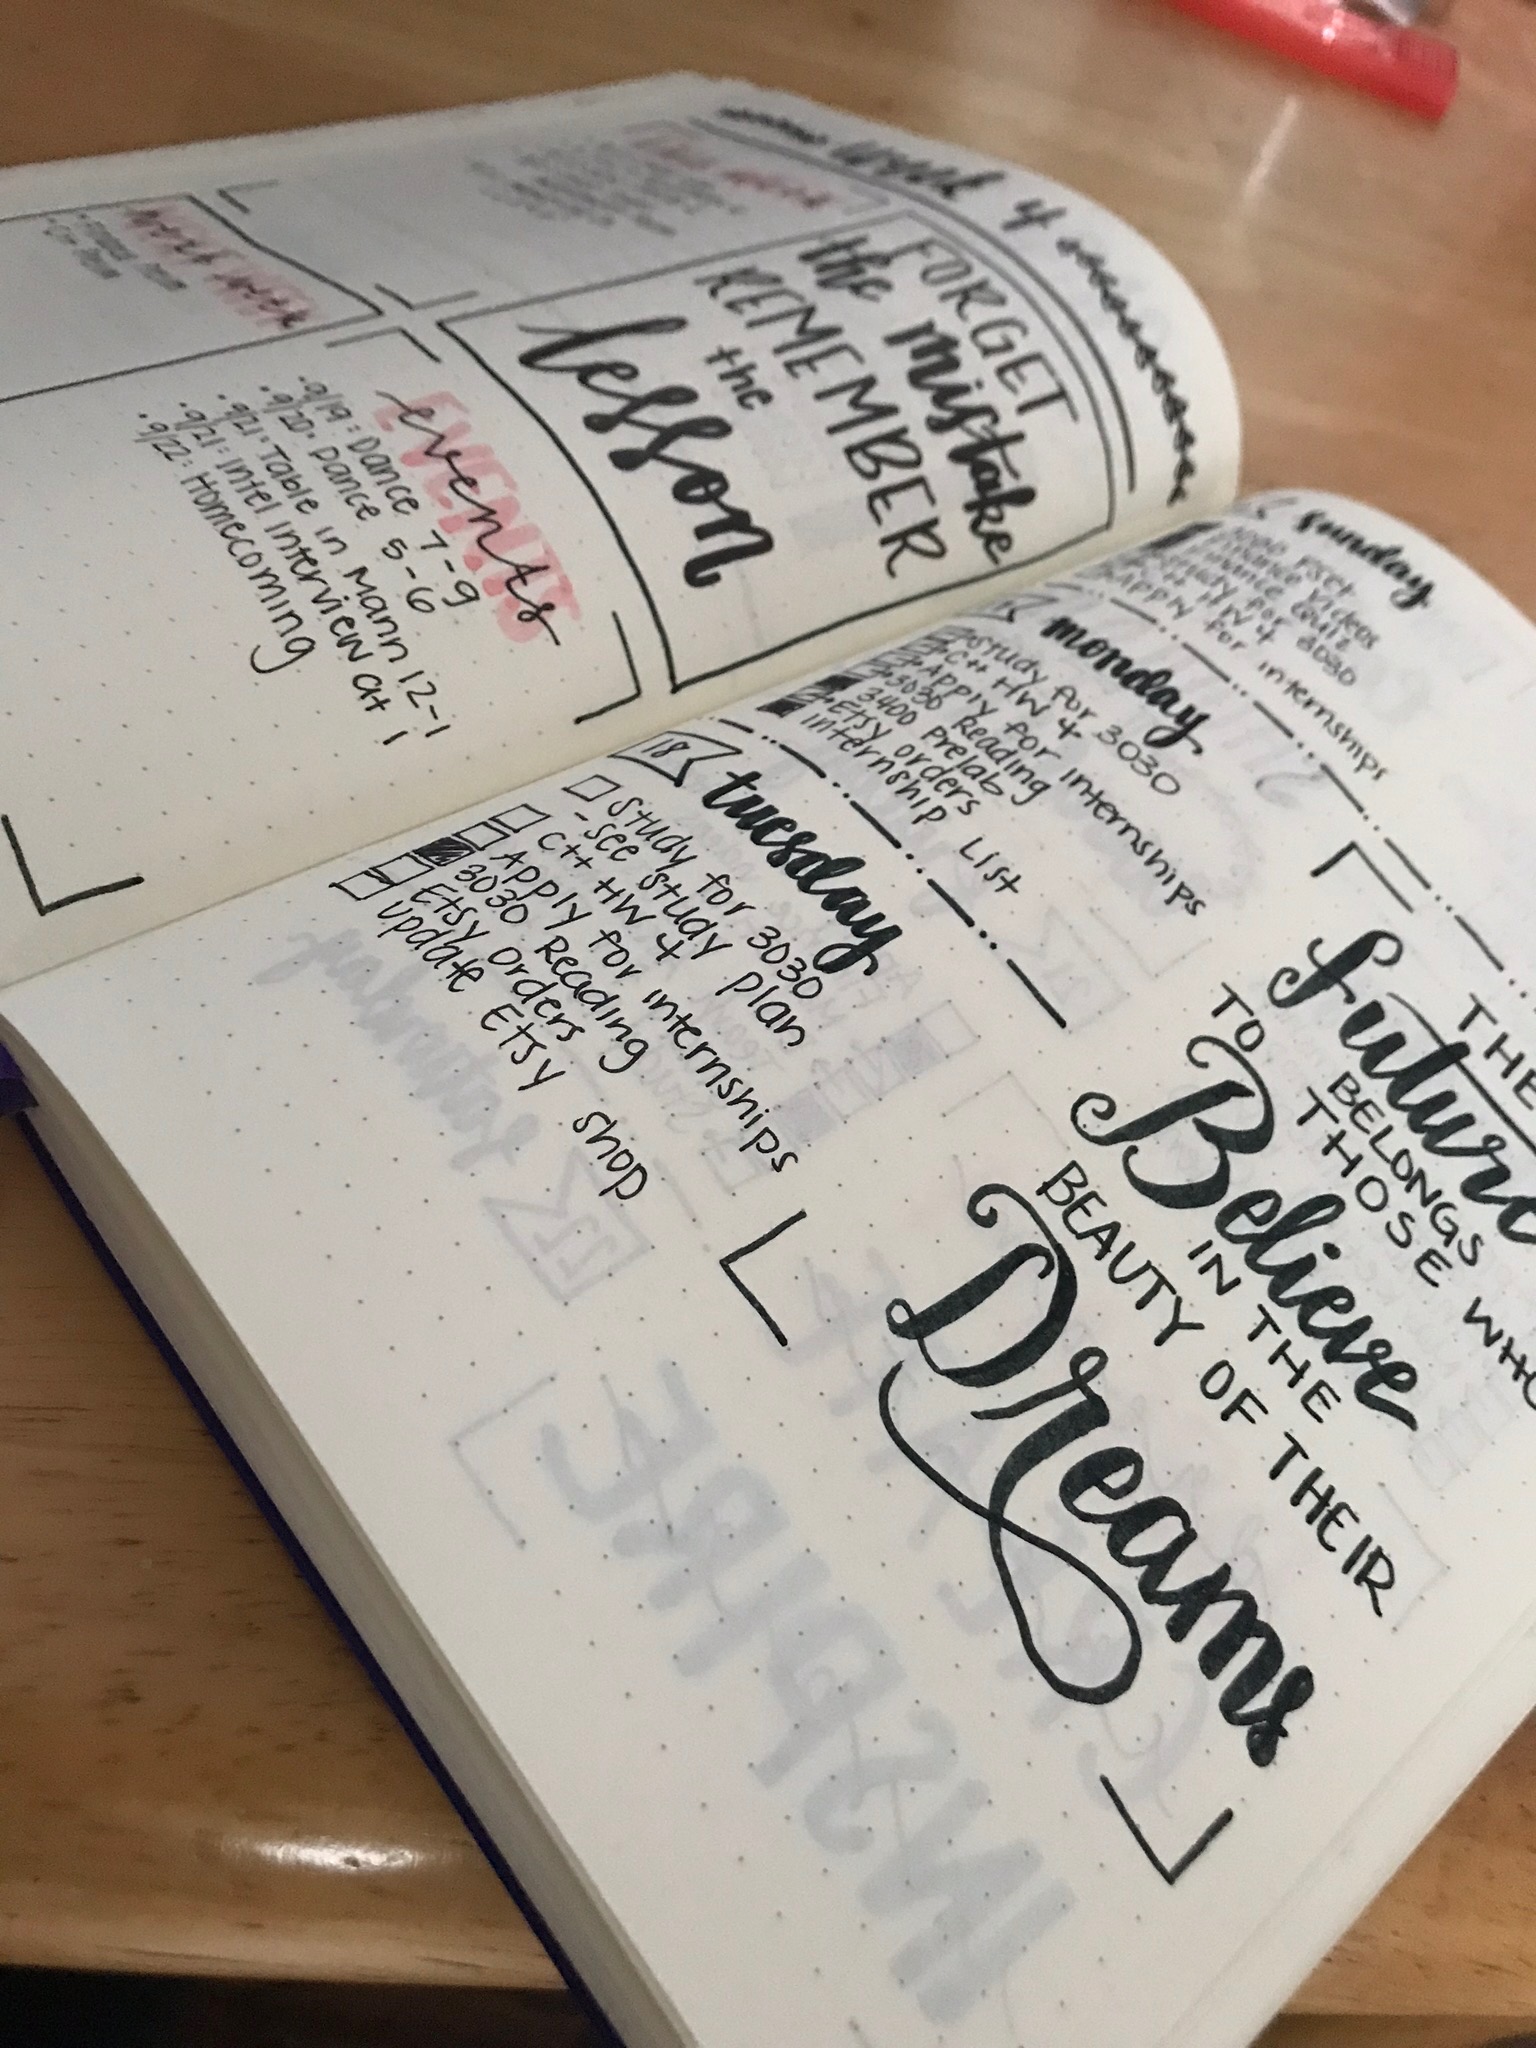 week of
FORGET
the mistake
REMEMBER
the
lesson
EVENTS
events
• 9/19: Dance 7-9
• 9/20: Dance 5-6
• 9/21: Table in Mann 12-1
• 9/21: Intel Interview at 1
• 9/22: Homecoming
sunday
Study for 3030
C++ HW 4
Apply for internships
monday
Study for 3030
C++ HW 4
Apply for internships
3030 Reading
3400 Prelab
Etsy orders
internship List
18
tuesday
Study for 3030
- see study plan
C++ HW 4
Apply for internships
3030 Reading
Etsy Orders
update Etsy shop
THE
Future
BELONGS
TO THOSE WHO
Believe
IN THE
BEAUTY OF THEIR
Dreams